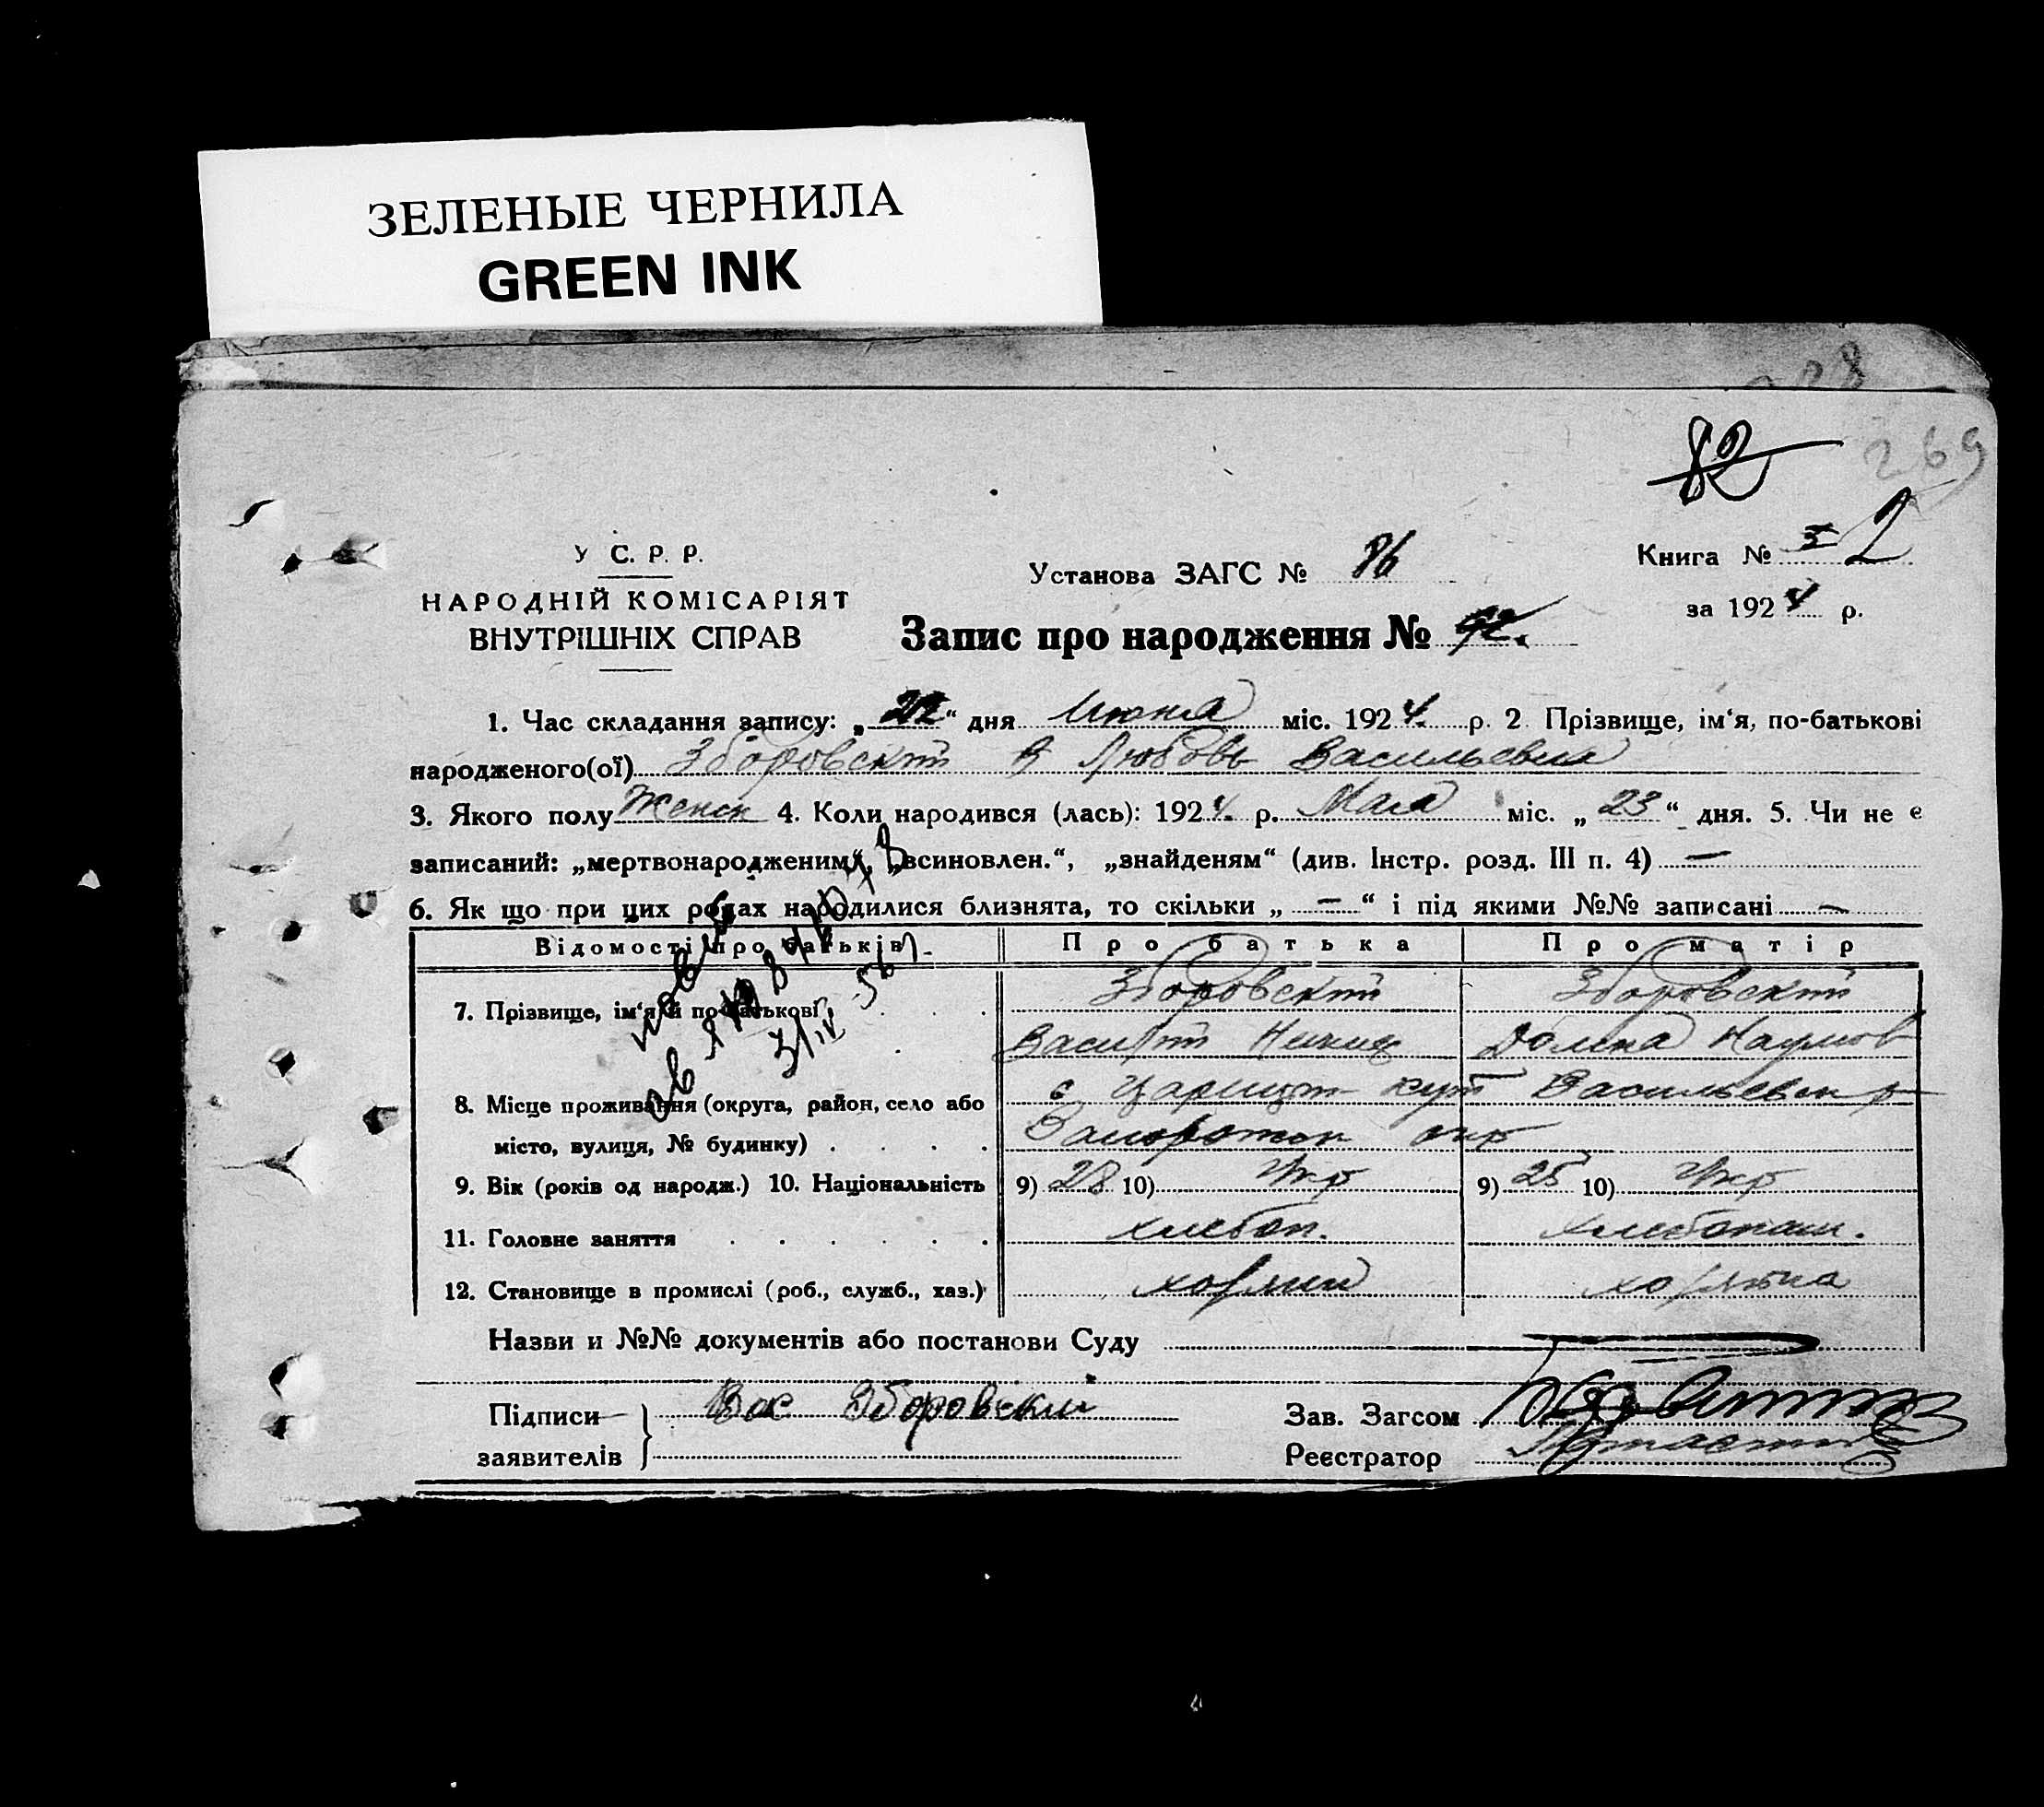 ЗЕЛЕНЫЕ ЧЕРНИЛА
GREEN INK
269
82
У С. Р. Р.
НАРОДНІЙ КОМІСАРІЯТ
ВНУТРІШНІХ СПРАВ
Установа ЗАГС № 86
Книга № 2
за 1924 р.
Запис про народження №
1. Час складання запису: „22“ дня Июня міс. 1924. р. 2 Прізвище, ім‘я, по-батькові
народженого(ої) Зборовскт Любовь Васильевна
3. Якого полу Женск 4. Коли народився (лась): 1924. р. Мая міс. „23“ дня. 5. Чи не є
записаний: „мертвонародженим“, „всиновлен.“, „знайденям“ (див. Інстр. розд. III п. 4) —
6. Як що при цих родах народилися близнята, то скільки „—“ і під якими №№ записані —
Відомості про батьків
Про батька
Про матір
7. Прізвище, ім‘я й по-батькові
Зборовскт
Зборовскт
Наумов
8. Місце проживання (округа, район, село або
місто, вулиця, № будинку)
с Царицт кут Васильевск р
окр
9. Вік (років од народж.) 10. Національність
9) 28 10) Укр
9) 25 10) Укр
11. Головне заняття
хлебоп.
хлебопаш.
12. Становище в промислі (роб., служб., хаз.)
хозяин
хозяйка
Назви и №№ документів або постанови Суду
Підписи заявителів
Вас Зборовский
Зав. Загсом
Реєстратор